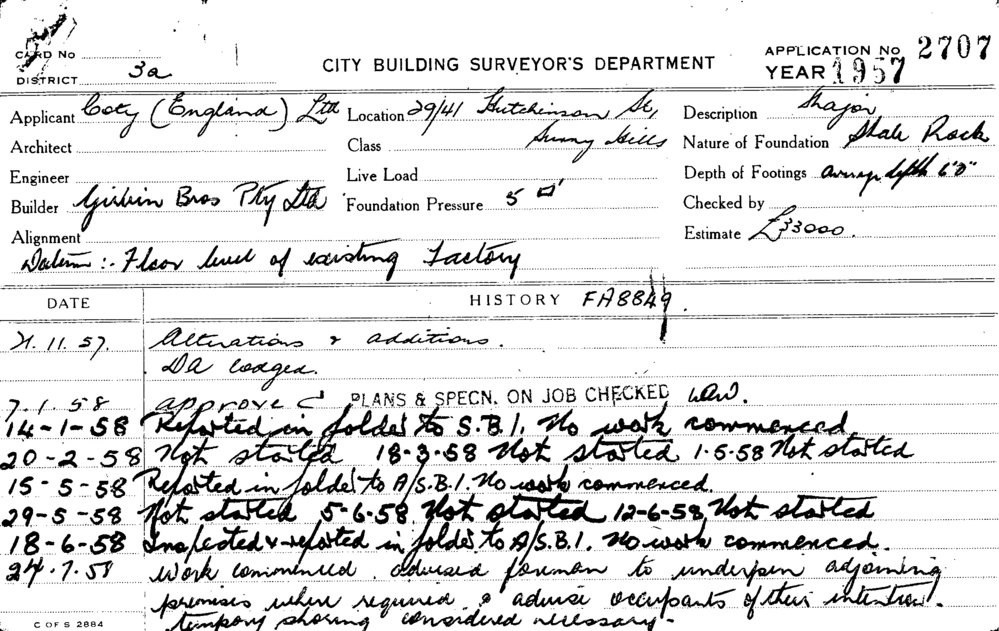 CARD No
DISTRICT 3a
CITY BUILDING SURVEYOR'S DEPARTMENT
APPLICATION No 2707
YEAR 1957
Applicant Coty (England) Ltd Location 29/41 Hutchinson St, Description Major
Architect Class Surry Hills Nature of Foundation Shale Rock
Engineer Live Load Depth of Footings average depth 6'0"
Builder Girvin Bros Pty Ltd Foundation Pressure 5 □' Checked by
Alignment Estimate £33000.
Datum :- Floor level of existing Factory
DATE HISTORY FA8849.
21.11.57. Alterations & additions.
DA lodged.
7.1.58 approved PLANS & SPECN. ON JOB CHECKED
14-1-58 Reported in folder to S.B.I. No work commenced
20-2-58 Not started 18-3-58 Not started 1-5-58 Not started
15-5-58 Reported in folder to A/S.B.I. No work commenced.
29-5-58 Not started 5-6-58 Not started 12-6-58 Not started
18-6-58 Inspected & reported in folder to A/S.B.I. No work commenced.
24.7.58 Work commenced. advised foreman to underpin adjoining
premises where required & advise occupants of their intention.
tempory shoring considered necessary -
C OF S 2884